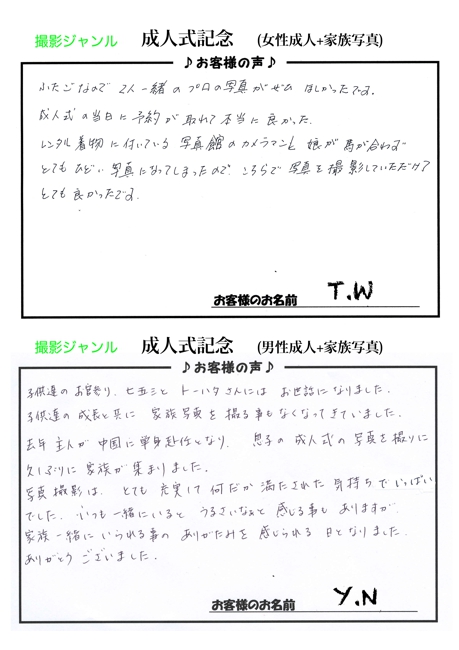 撮影ジャンル 成人式記念 (女性成人+家族写真)
♪お客様の声♪
ふたごなので 2人一緒のプロの写真がぜひ ほしかったです。
成人式の当日に予約が取れて本当に良かった。
レンタル着物に付いている 写真館のカメラマンと 娘が馬が合わず
とてもひどい写真になってしまったので、こちらで写真を撮影していただけて
とても良かったです。
お客様のお名前 T.W
撮影ジャンル 成人式記念 (男性成人+家族写真)
♪お客様の声♪
子供達のお宮参り、七五三と トーハタさんには お世話になりました。
子供達の成長と共に 家族写真を撮る事もなくなってきていました。
去年 主人が中国に単身赴任となり、息子の成人式の写真を撮りに
久しぶりに家族が集まりました。
写真撮影は、とても充実して何だか満たされた気持ちでいっぱい
でした。いつも一緒にいると うるさいなぁと感じる事も ありますが、
家族一緒にいられる事の ありがたみを感じられる 日となりました。
ありがとうございました。
お客様のお名前 Y.N